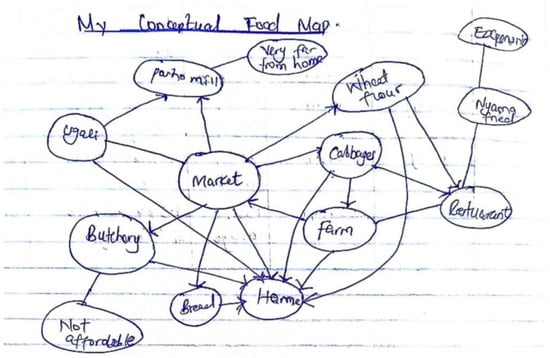 My Conceptual Food Map.
Very far
from home
posho mill
Wheat
flour
Nyama
fried
Ugali
Cabbages
Market
Restuarant
Farm
Butchery
Home
Bread
Not
affordable